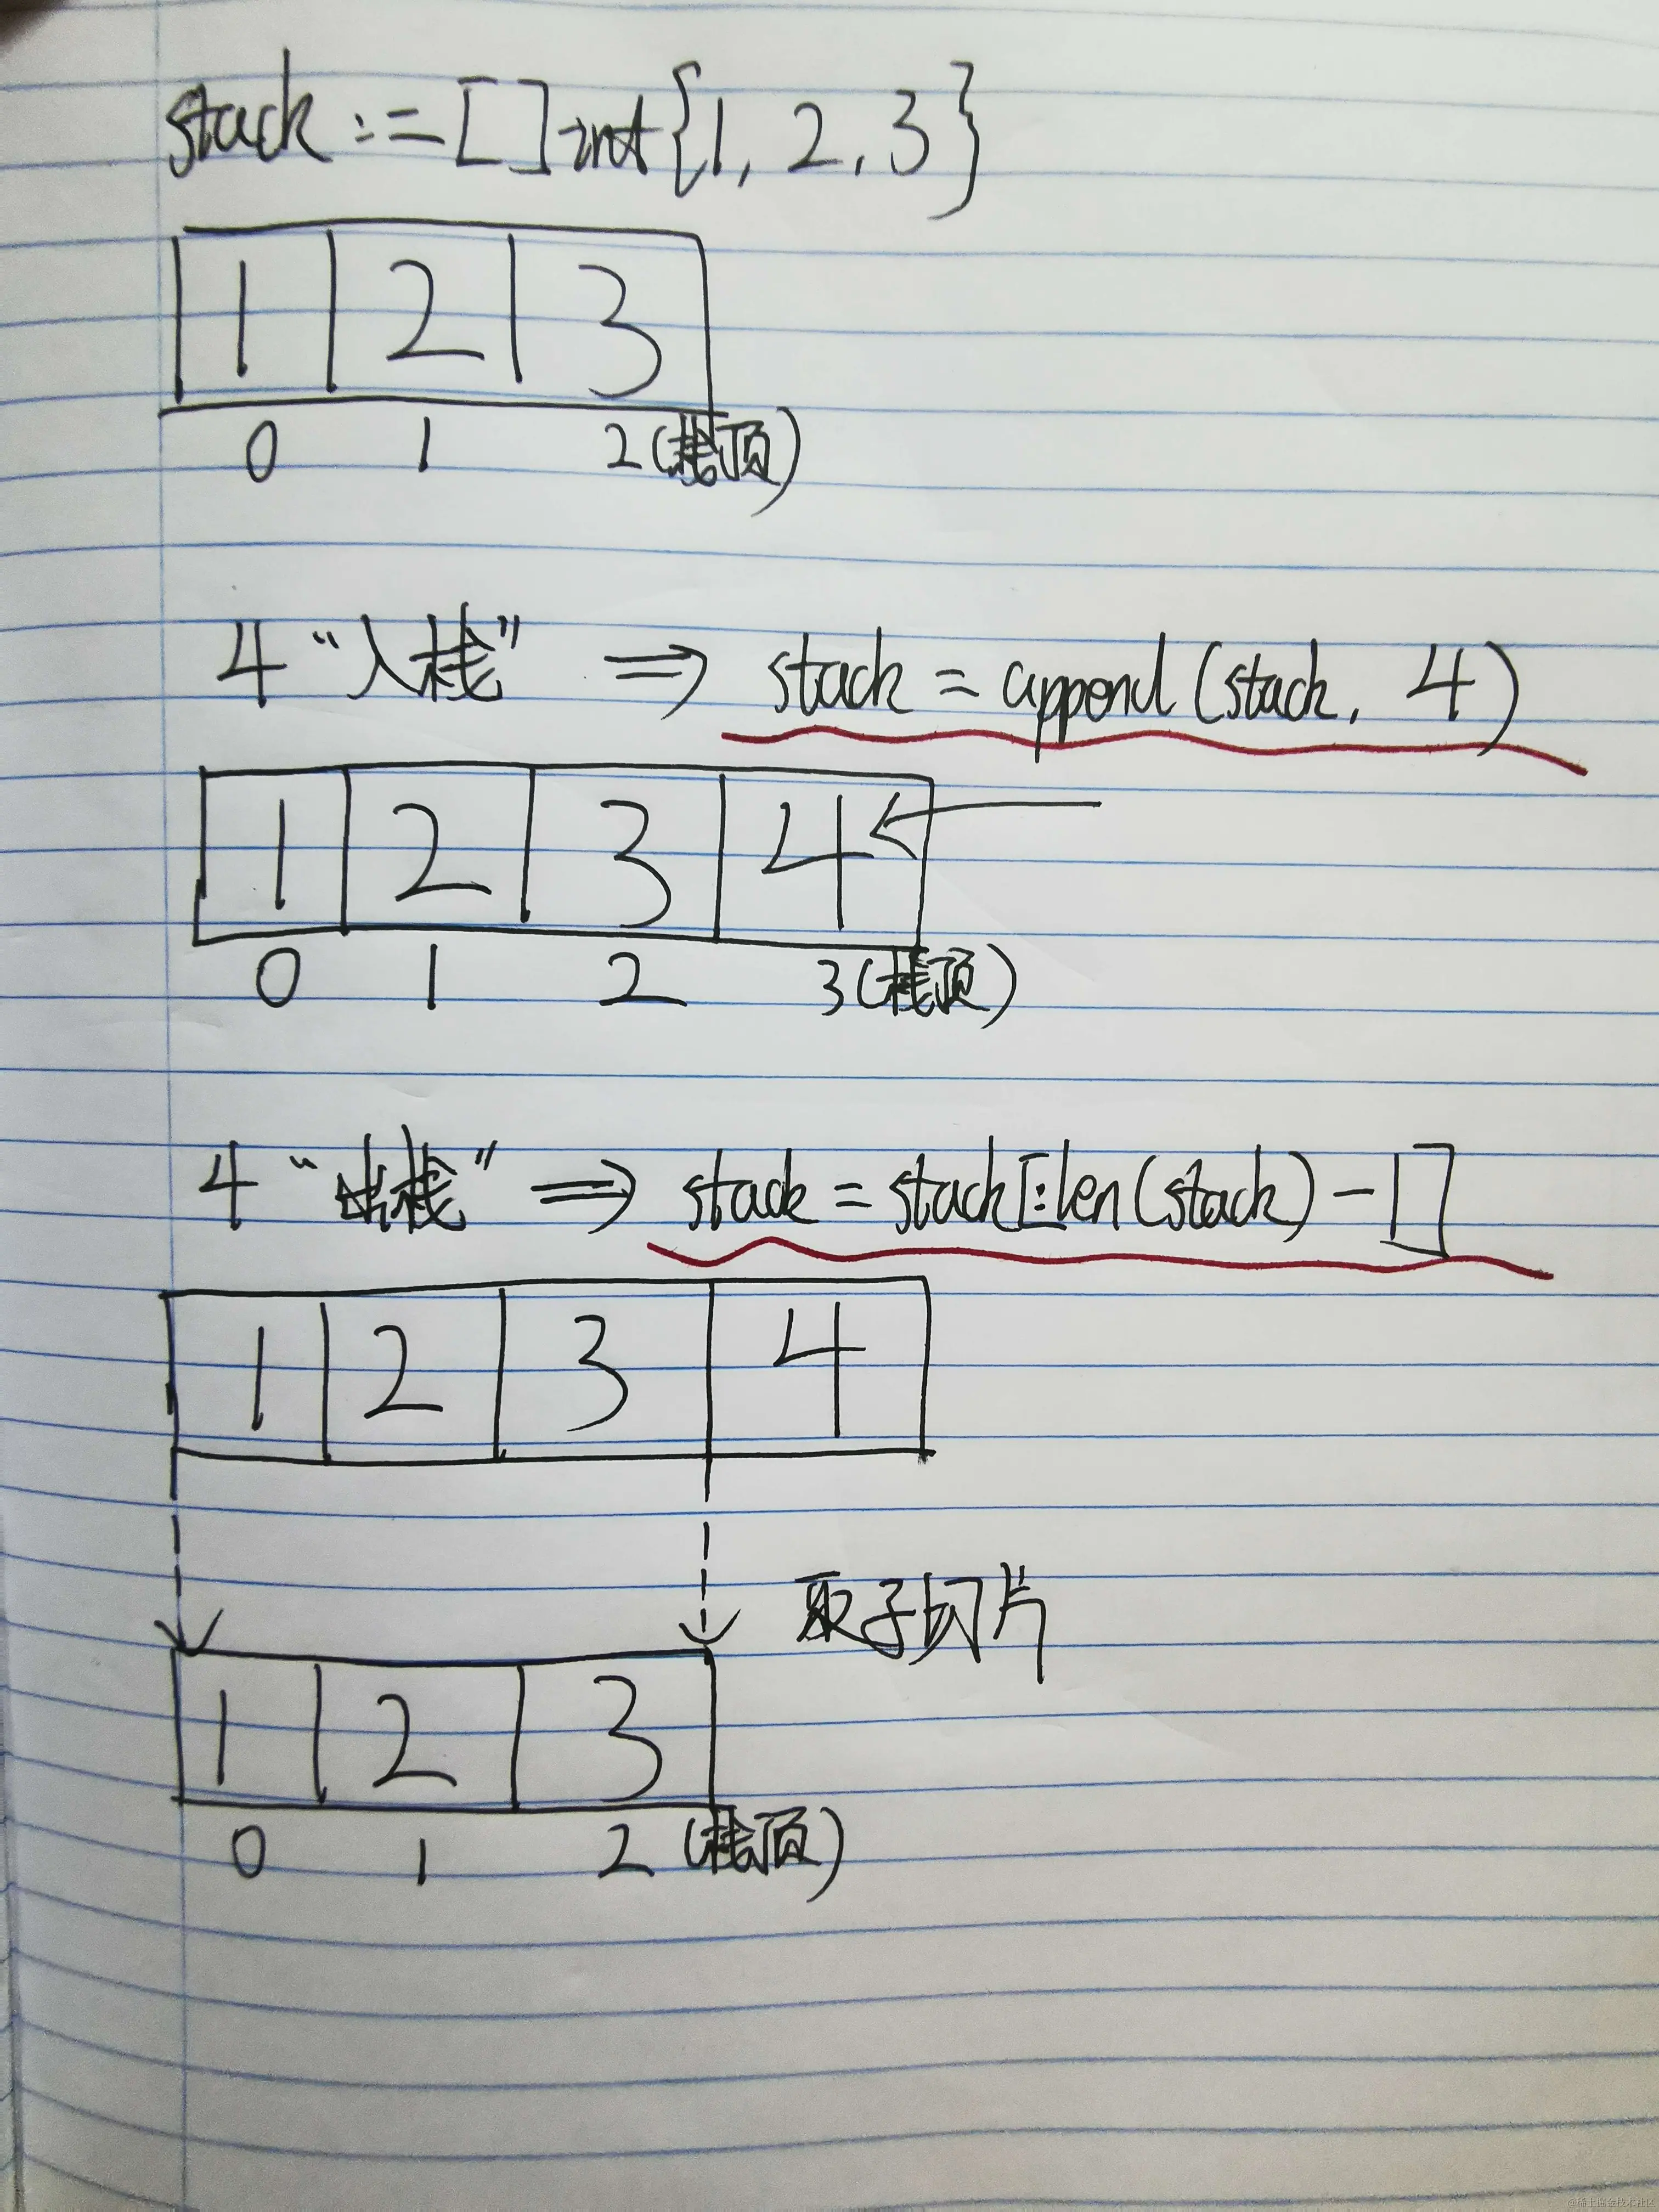 stack := []int{1, 2, 3}
1 2 3
0 1 2(栈顶)
4 “入栈” ⇒ stack = append(stack, 4)
1 2 3 4
0 1 2 3(栈顶)
4 “出栈” ⇒ stack = stack[:len(stack)-1]
1 2 3 4
取子切片
1 2 3
0 1 2 (栈顶)
@稀土掘金技术社区